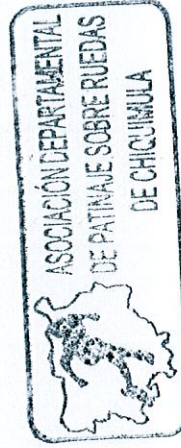 ASOCIACIÓN DEPARTAMENTAL
DE PATINAJE SOBRE RUEDAS
DE CHIQUIMULA